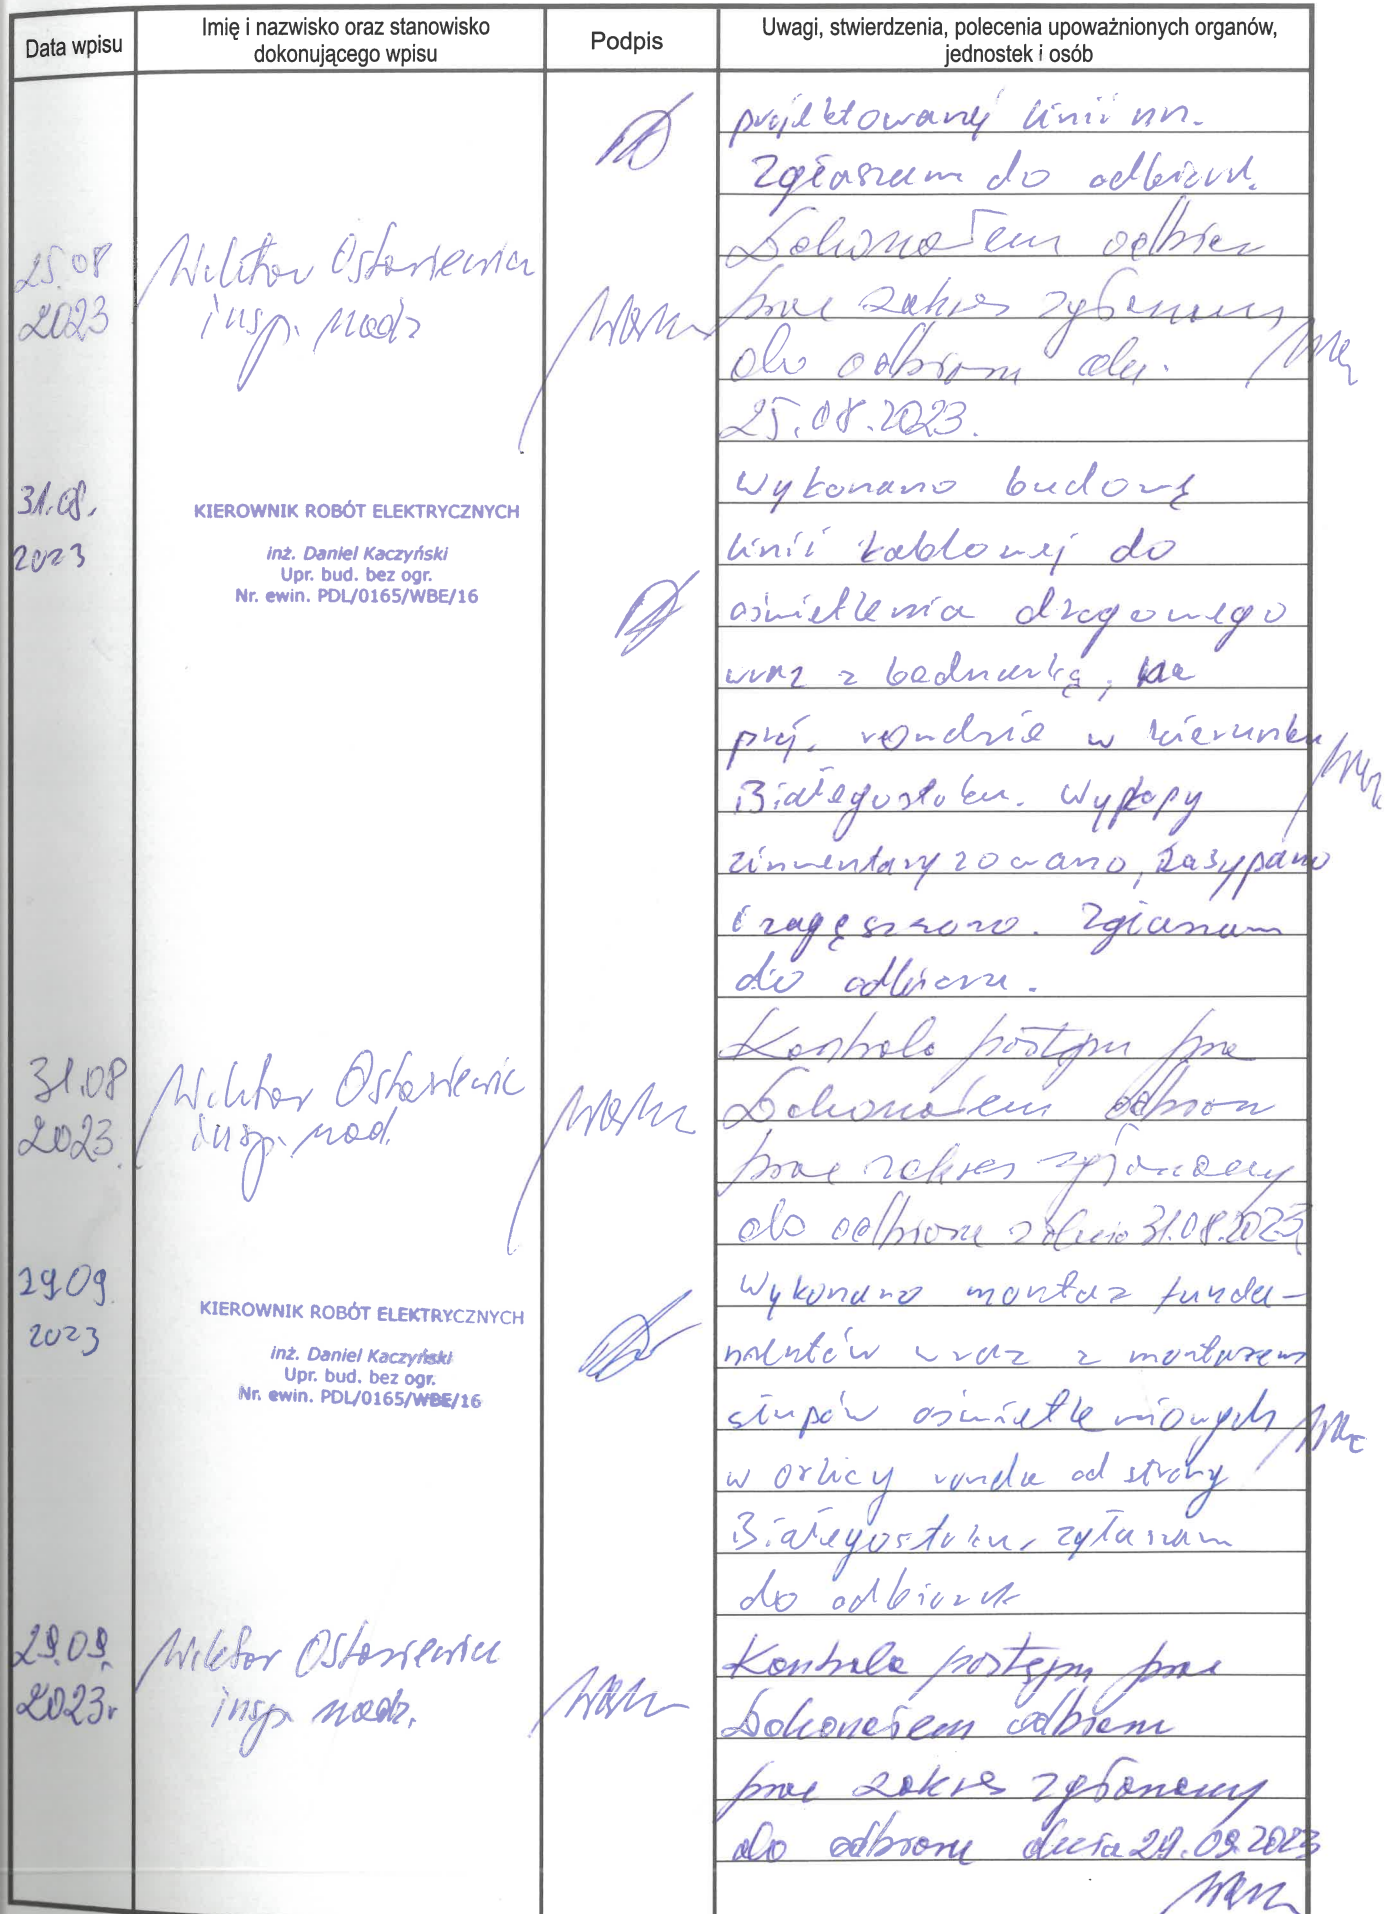 Data wpisu
Imię i nazwisko oraz stanowisko
dokonującego wpisu
Podpis
Uwagi, stwierdzenia, polecenia upoważnionych organów,
jednostek i osób
projektowanej linii nn.
Zgłaszam do odbioru.
25.08
2023
Wiktor Ostasiewicz
insp. nadz
Dokonałem odbior
prac zakres zgłoszony
do odbioru dn.
25.08.2023.
31.08.
2023
KIEROWNIK ROBÓT ELEKTRYCZNYCH
inż. Daniel Kaczyński
Upr. bud. bez ogr.
Nr. ewin. PDL/0165/WBE/16
Wykonano budowę
linii kablowej do
oświetlenia drogowego
wraz z bednarką, na
proj. rondzie w kierunku
Białegostoku. Wykopy
zinwentaryzowano, zasypano
i zagęszczono. Zgłaszam
do odbioru.
31.08
2023.
Wiktor Ostasiewic
insp. nad.
Kontrola postępu prac
Dokonałem odbioru
prac zakres zgłoszony
do odbioru z dnia 31.08.2023
29.09.
2023
KIEROWNIK ROBÓT ELEKTRYCZNYCH
inż. Daniel Kaczyński
Upr. bud. bez ogr.
Nr. ewin. PDL/0165/WBE/16
Wykonano montaż funda-
mentów wraz z montażem
słupów oświetleniowych
w okolicy ronda od strony
Białegostoku, zgłaszam
do odbioru
29.09.
2023r
Wiktor Ostasiewicz
insp. nadz.
Kontrola postępu prac
Dokonałem odbioru
prac zakres zgłoszony
do odbioru dnia 29.09.2023